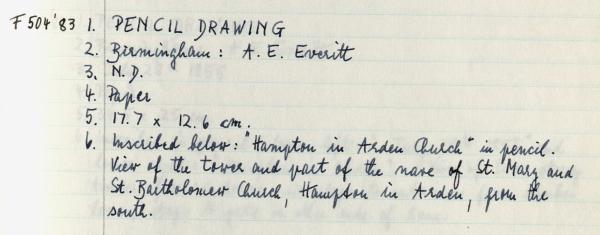 F504'83 1. PENCIL DRAWING
2. Birmingham: A. E. Everitt
3. N.D.
4. Paper
5. 17.7 x 12.6 cm.
6. Inscribed below: "Hampton in Arden Church" in pencil.
View of the tower and part of the nave of St. Mary and
St. Bartholomew Church, Hampton in Arden, from the
south.